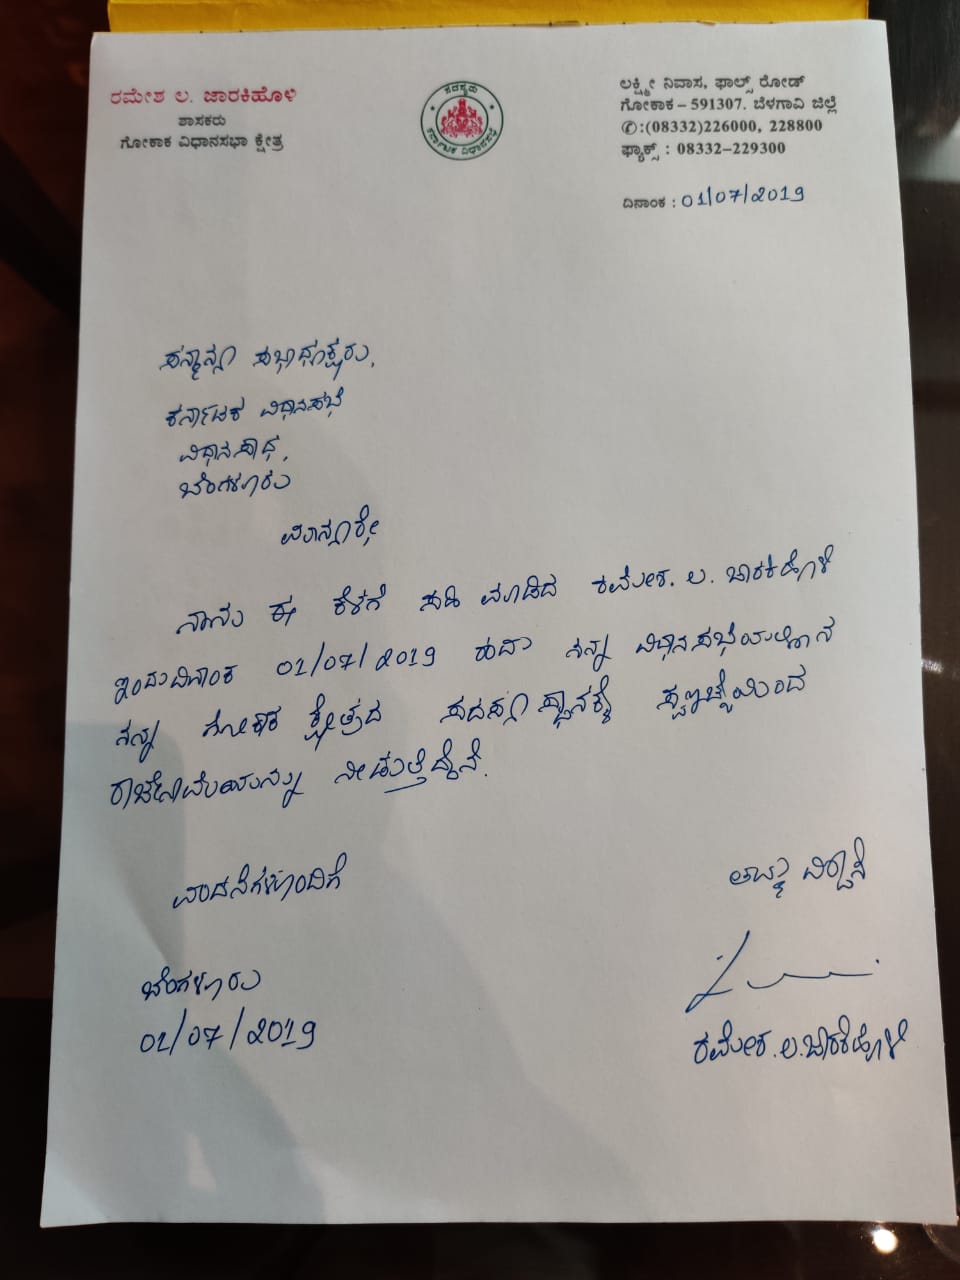 ರಮೇಶ ಲ. ಜಾರಕಿಹೊಳಿ
ಶಾಸಕರು
ಗೋಕಾಕ ವಿಧಾನಸಭಾ ಕ್ಷೇತ್ರ
ಸದಸ್ಯರು
ಕರ್ನಾಟಕ ವಿಧಾನಸಭೆ
ಲಕ್ಷ್ಮೀ ನಿವಾಸ, ಫಾಲ್ಸ್ ರೋಡ್
ಗೋಕಾಕ – 591307. ಬೆಳಗಾವಿ ಜಿಲ್ಲೆ
✆:(08332)226000, 228800
ಫ್ಯಾಕ್ಸ್ : 08332–229300
ದಿನಾಂಕ : 01/07/2019
ಸನ್ಮಾನ್ಯ ಸಭಾಧ್ಯಕ್ಷರು,
ಕರ್ನಾಟಕ ವಿಧಾನಸಭೆ
ವಿಧಾನಸೌಧ,
ಬೆಂಗಳೂರು
ಮಾನ್ಯರೇ,
ನಾನು ಈ ಕೆಳಗೆ ಸಹಿ ಮಾಡಿದ ರಮೇಶ. ಲ. ಜಾರಕಿಹೊಳಿ
ಇಂದು ದಿನಾಂಕ 01/07/2019 ರಂದು ನನ್ನ ವಿಧಾನಸಭೆಯಲ್ಲಿನ
ನನ್ನ ಗೋಕಾಕ ಕ್ಷೇತ್ರದ ಸದಸ್ಯ ಸ್ಥಾನಕ್ಕೆ ಸ್ವಇಚ್ಛೆಯಿಂದ
ರಾಜೀನಾಮೆಯನ್ನು ನೀಡುತ್ತಿದ್ದೇನೆ.
ವಂದನೆಗಳೊಂದಿಗೆ
ತಮ್ಮ ವಿಶ್ವಾಸಿ
ಬೆಂಗಳೂರು
01/07/2019
ರಮೇಶ. ಲ. ಜಾರಕಿಹೊಳಿ